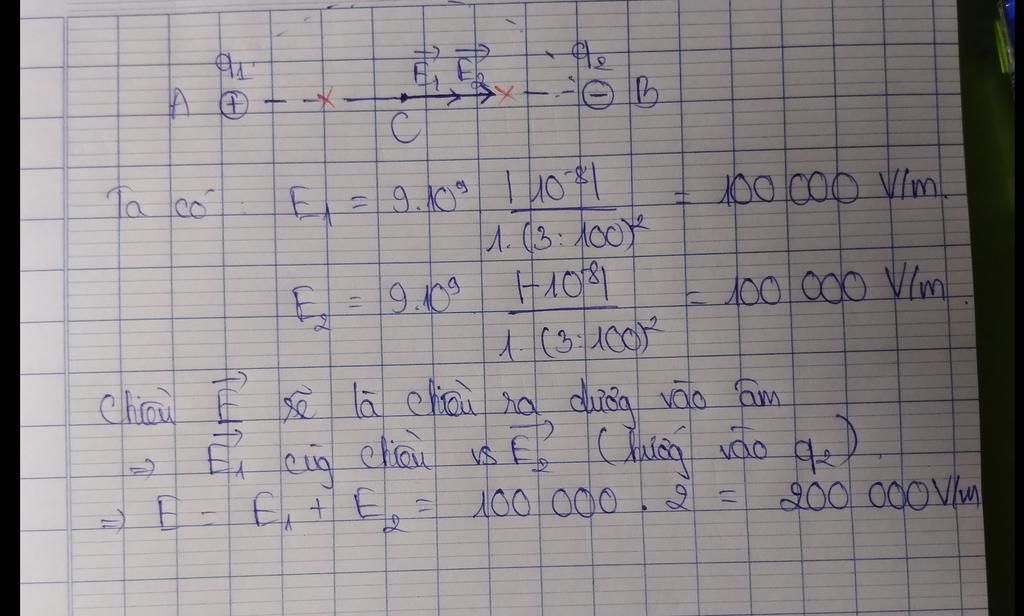 q₁ E₁ E₂ q₂
A + C − B
Ta có: E₁ = 9.10⁹ |10⁻⁸| / 1.(3:100)² = 100 000 V/m.
E₂ = 9.10⁹ |-10⁻⁸| / 1.(3:100)² = 100 000 V/m.
Chiều E sẽ là chiều ra dương vào âm
⇒ E₁ cùg chiều vs E₂ (hướg vào q₂).
⇒ E = E₁ + E₂ = 100 000 . 2 = 200 000 V/m